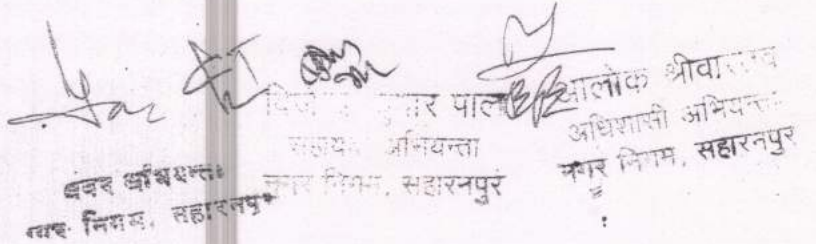 अवर अभियन्ता
नगर निगम, सहारनपुर
कुमार पाल
सहायक अभियन्ता
नगर निगम, सहारनपुर
आलोक श्रीवास्तव
अधिशासी अभियन्ता
नगर निगम, सहारनपुर